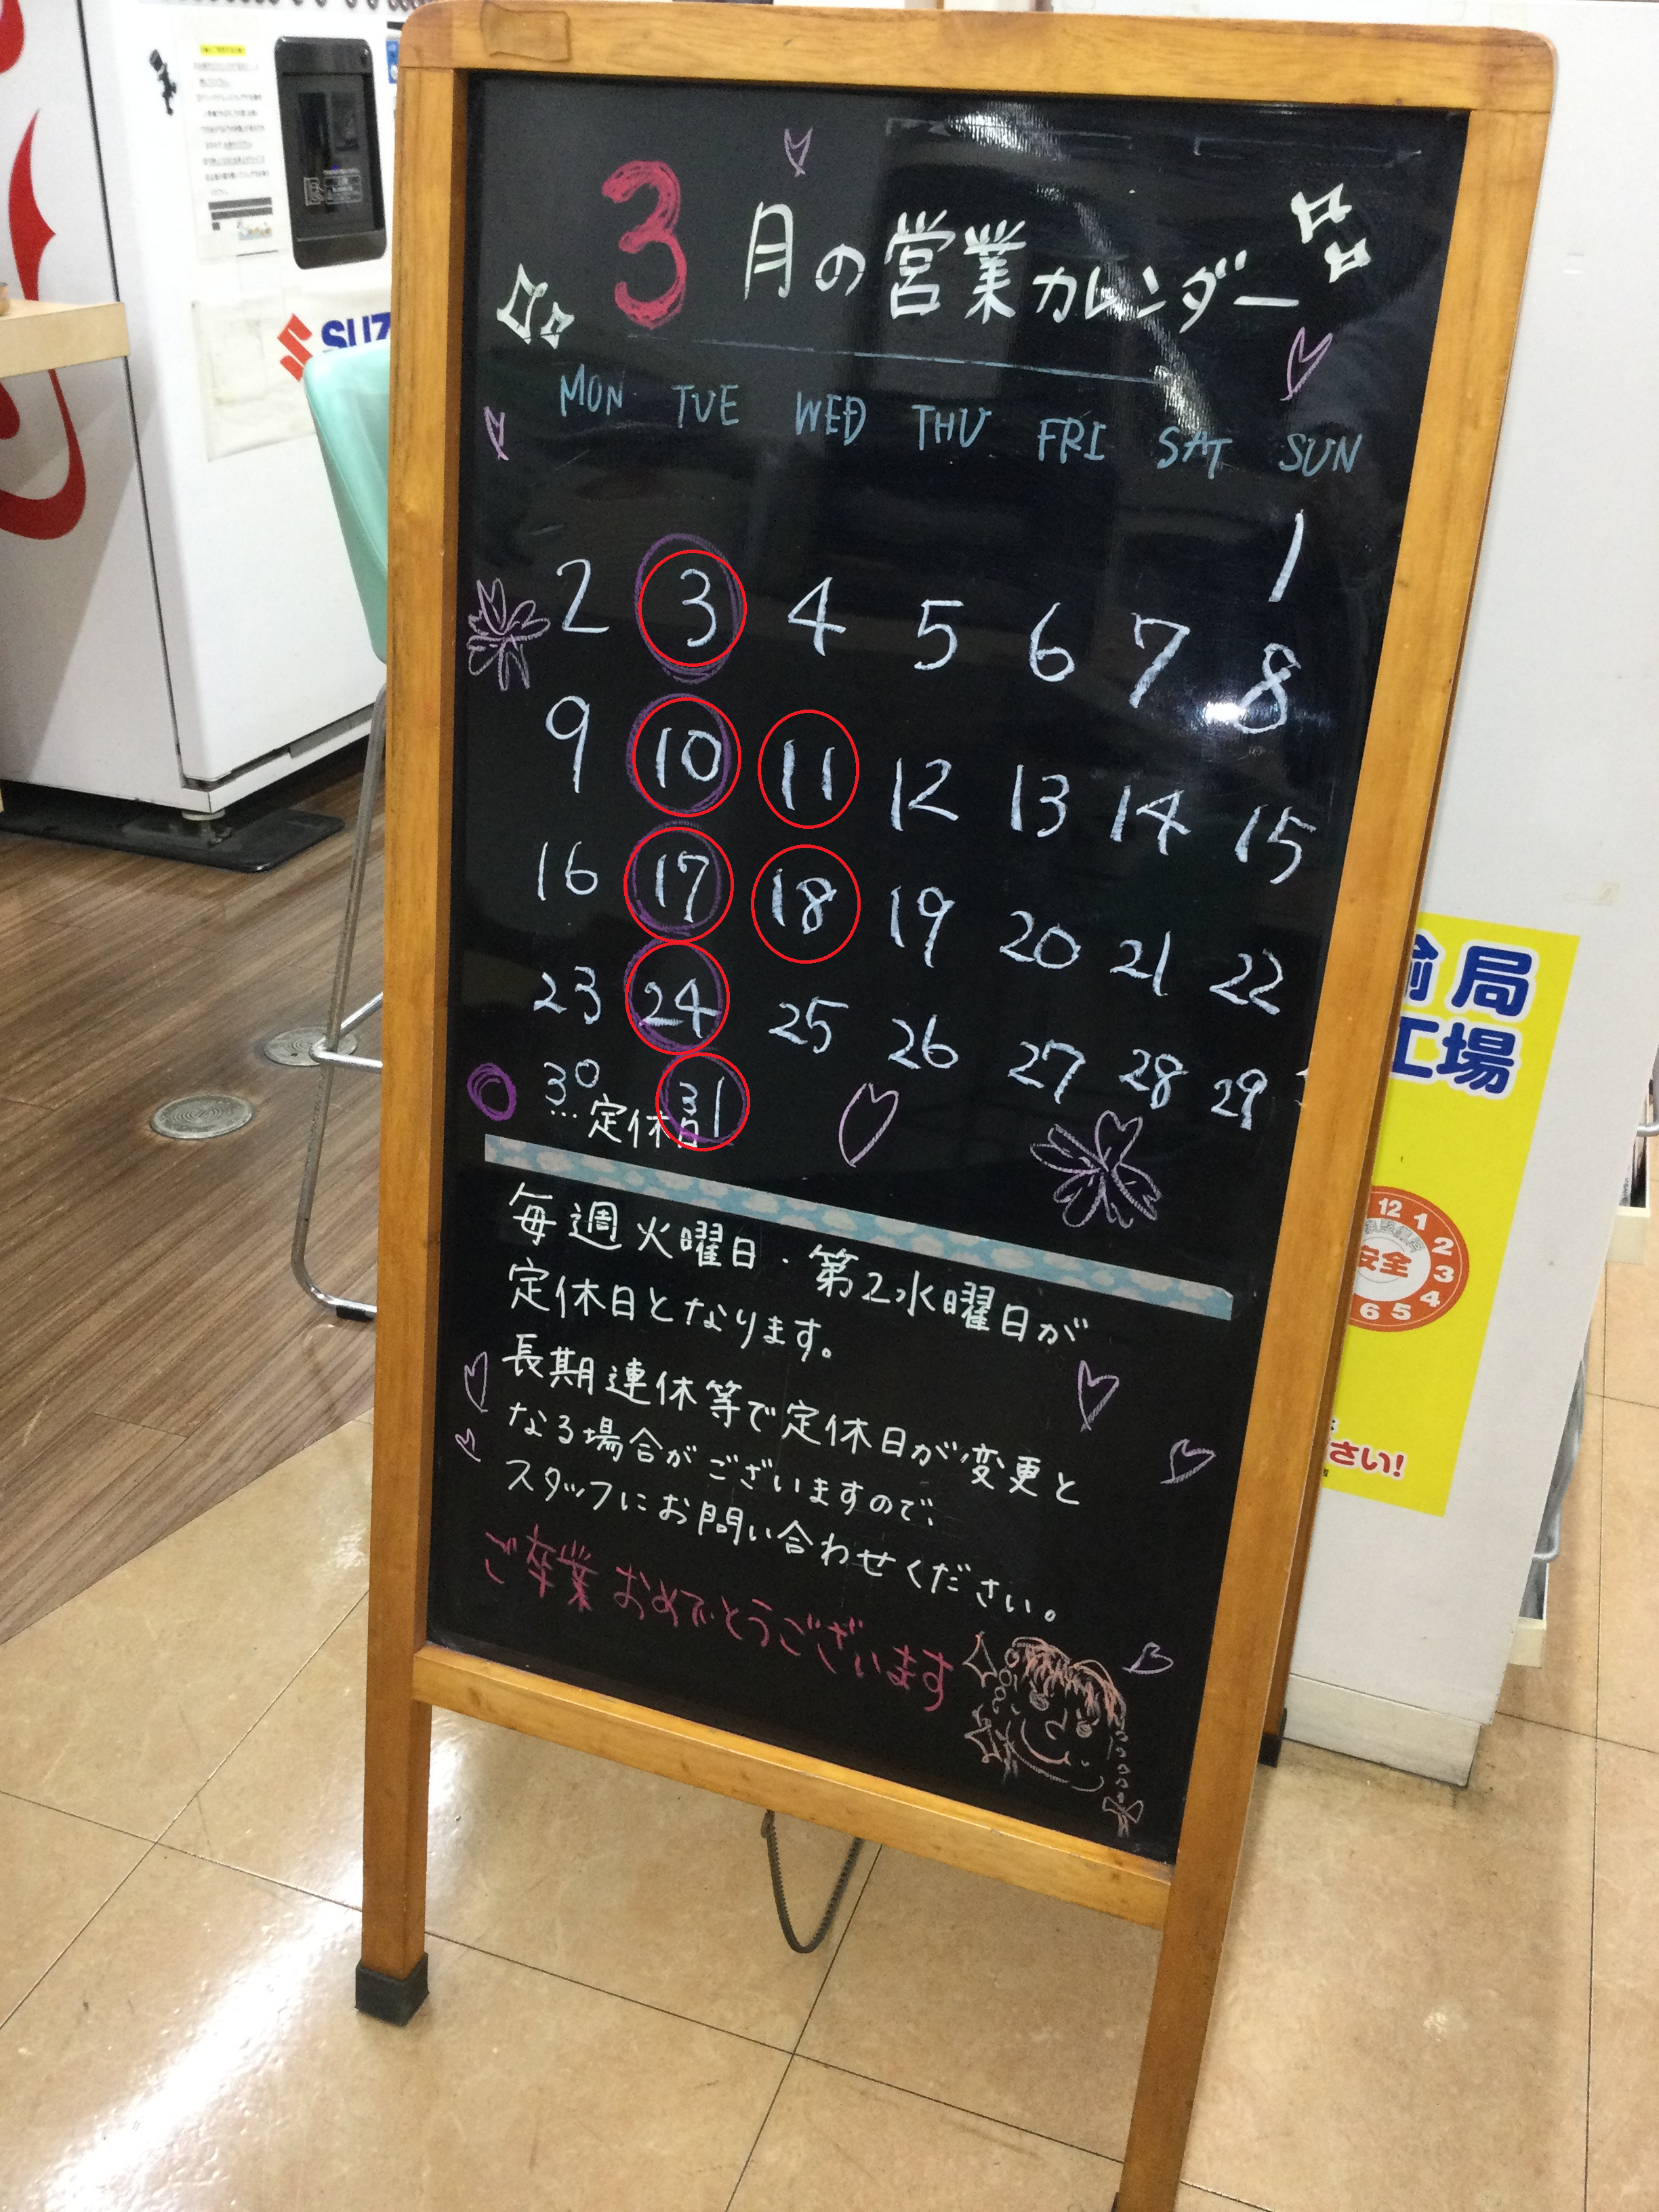 3月の営業カレンダー
MON TUE WED THU FRI SAT SUN
1
2 3 4 5 6 7 8
9 10 11 12 13 14 15
16 17 18 19 20 21 22
23 24 25 26 27 28 29
30 31
…定休日
毎週火曜日・第2水曜日が
定休日となります。
長期連休等で定休日が変更と
なる場合がございますので、
スタッフにお問い合わせください。
ご卒業おめでとうございます
SUZ
輸局
工場
12 1 2 3 4 5 6
安全
さい!